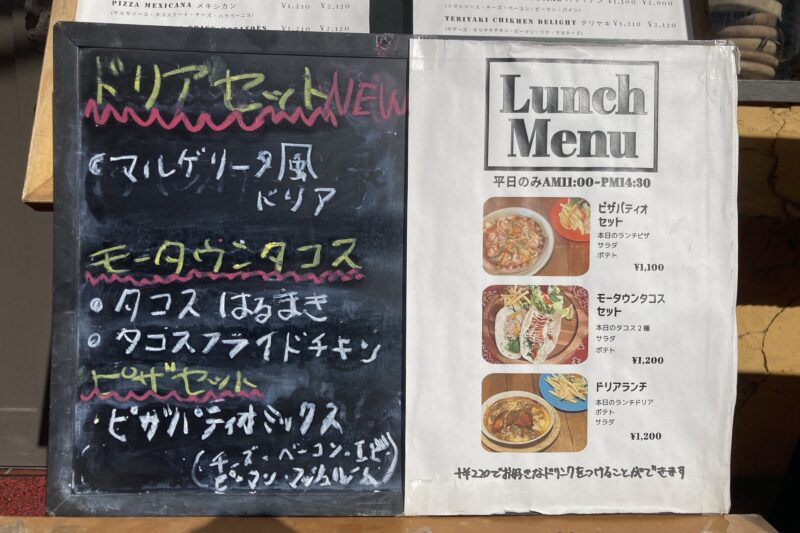 PIZZA MEXICANA メキシカン ¥1,210 ¥2,120
(サルサソース・タコスミート・チーズ・ハラペーニョ)
(トマトソース・チーズ・ベーコン・ピーマン・パイン)
TERIYAKI CHIKHEN DELIGHT テリヤキ ¥1,210 ¥2,120
ドリアセット NEW
マルゲリータ風
ドリア
モータウンタコス
タコス はるまき
タコスフライドチキン
ピザセット
・ピザパティオミックス
(チーズ・ベーコン・エビ
ピーマン・マッシュルーム)
Lunch
Menu
平日のみAM11:00~PM14:30
ピザパティオ
セット
本日のランチピザ
サラダ
ポテト
¥1,100
モータウンタコス
セット
本日のタコス2種
サラダ
ポテト
¥1,200
ドリアランチ
本日のランチドリア
ポテト
サラダ
¥1,200
+¥220でお好きなドリンクをつけることができます